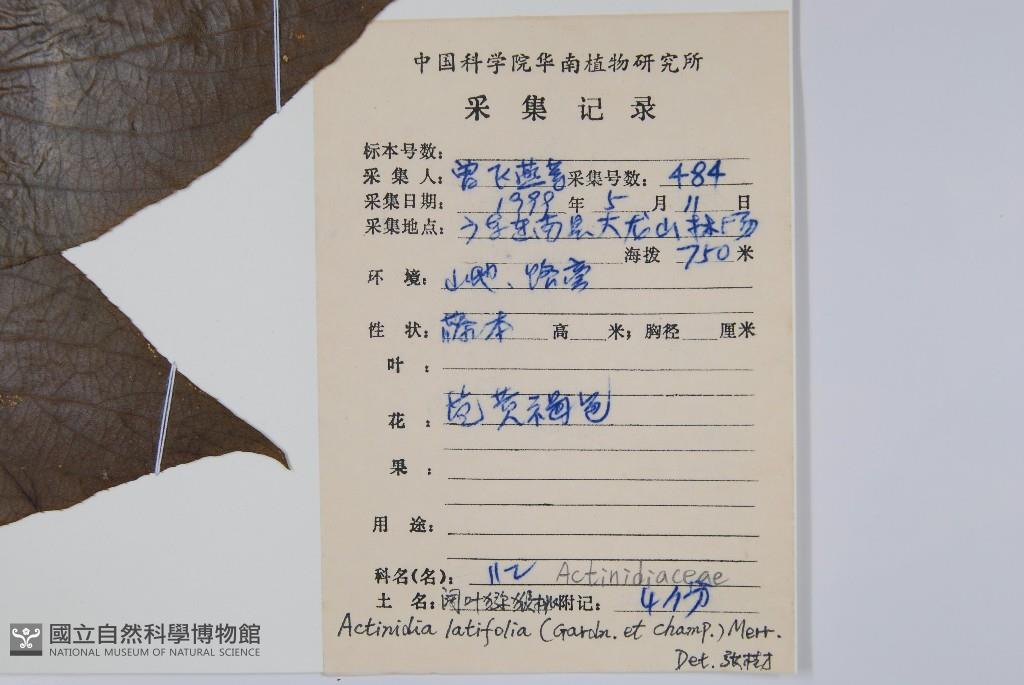 中国科学院华南植物研究所
采集记录
标本号数:
采集人: 曾飞燕等 采集号数: 484
采集日期: 1999 年 5 月 11 日
采集地点: 广东连南县大龙山林场
海拨 750 米
环境: 山地、路旁
性状: 藤本 高 米; 胸径 厘米
叶:
花: 黄褐色
果:
用途:
科名(名): 112 Actinidiaceae
土名: 阔叶猕猴桃 附记: 4份
Actinidia latifolia (Gardn. et Champ.) Merr.
Det. 张桂才
國立自然科學博物館
NATIONAL MUSEUM OF NATURAL SCIENCE